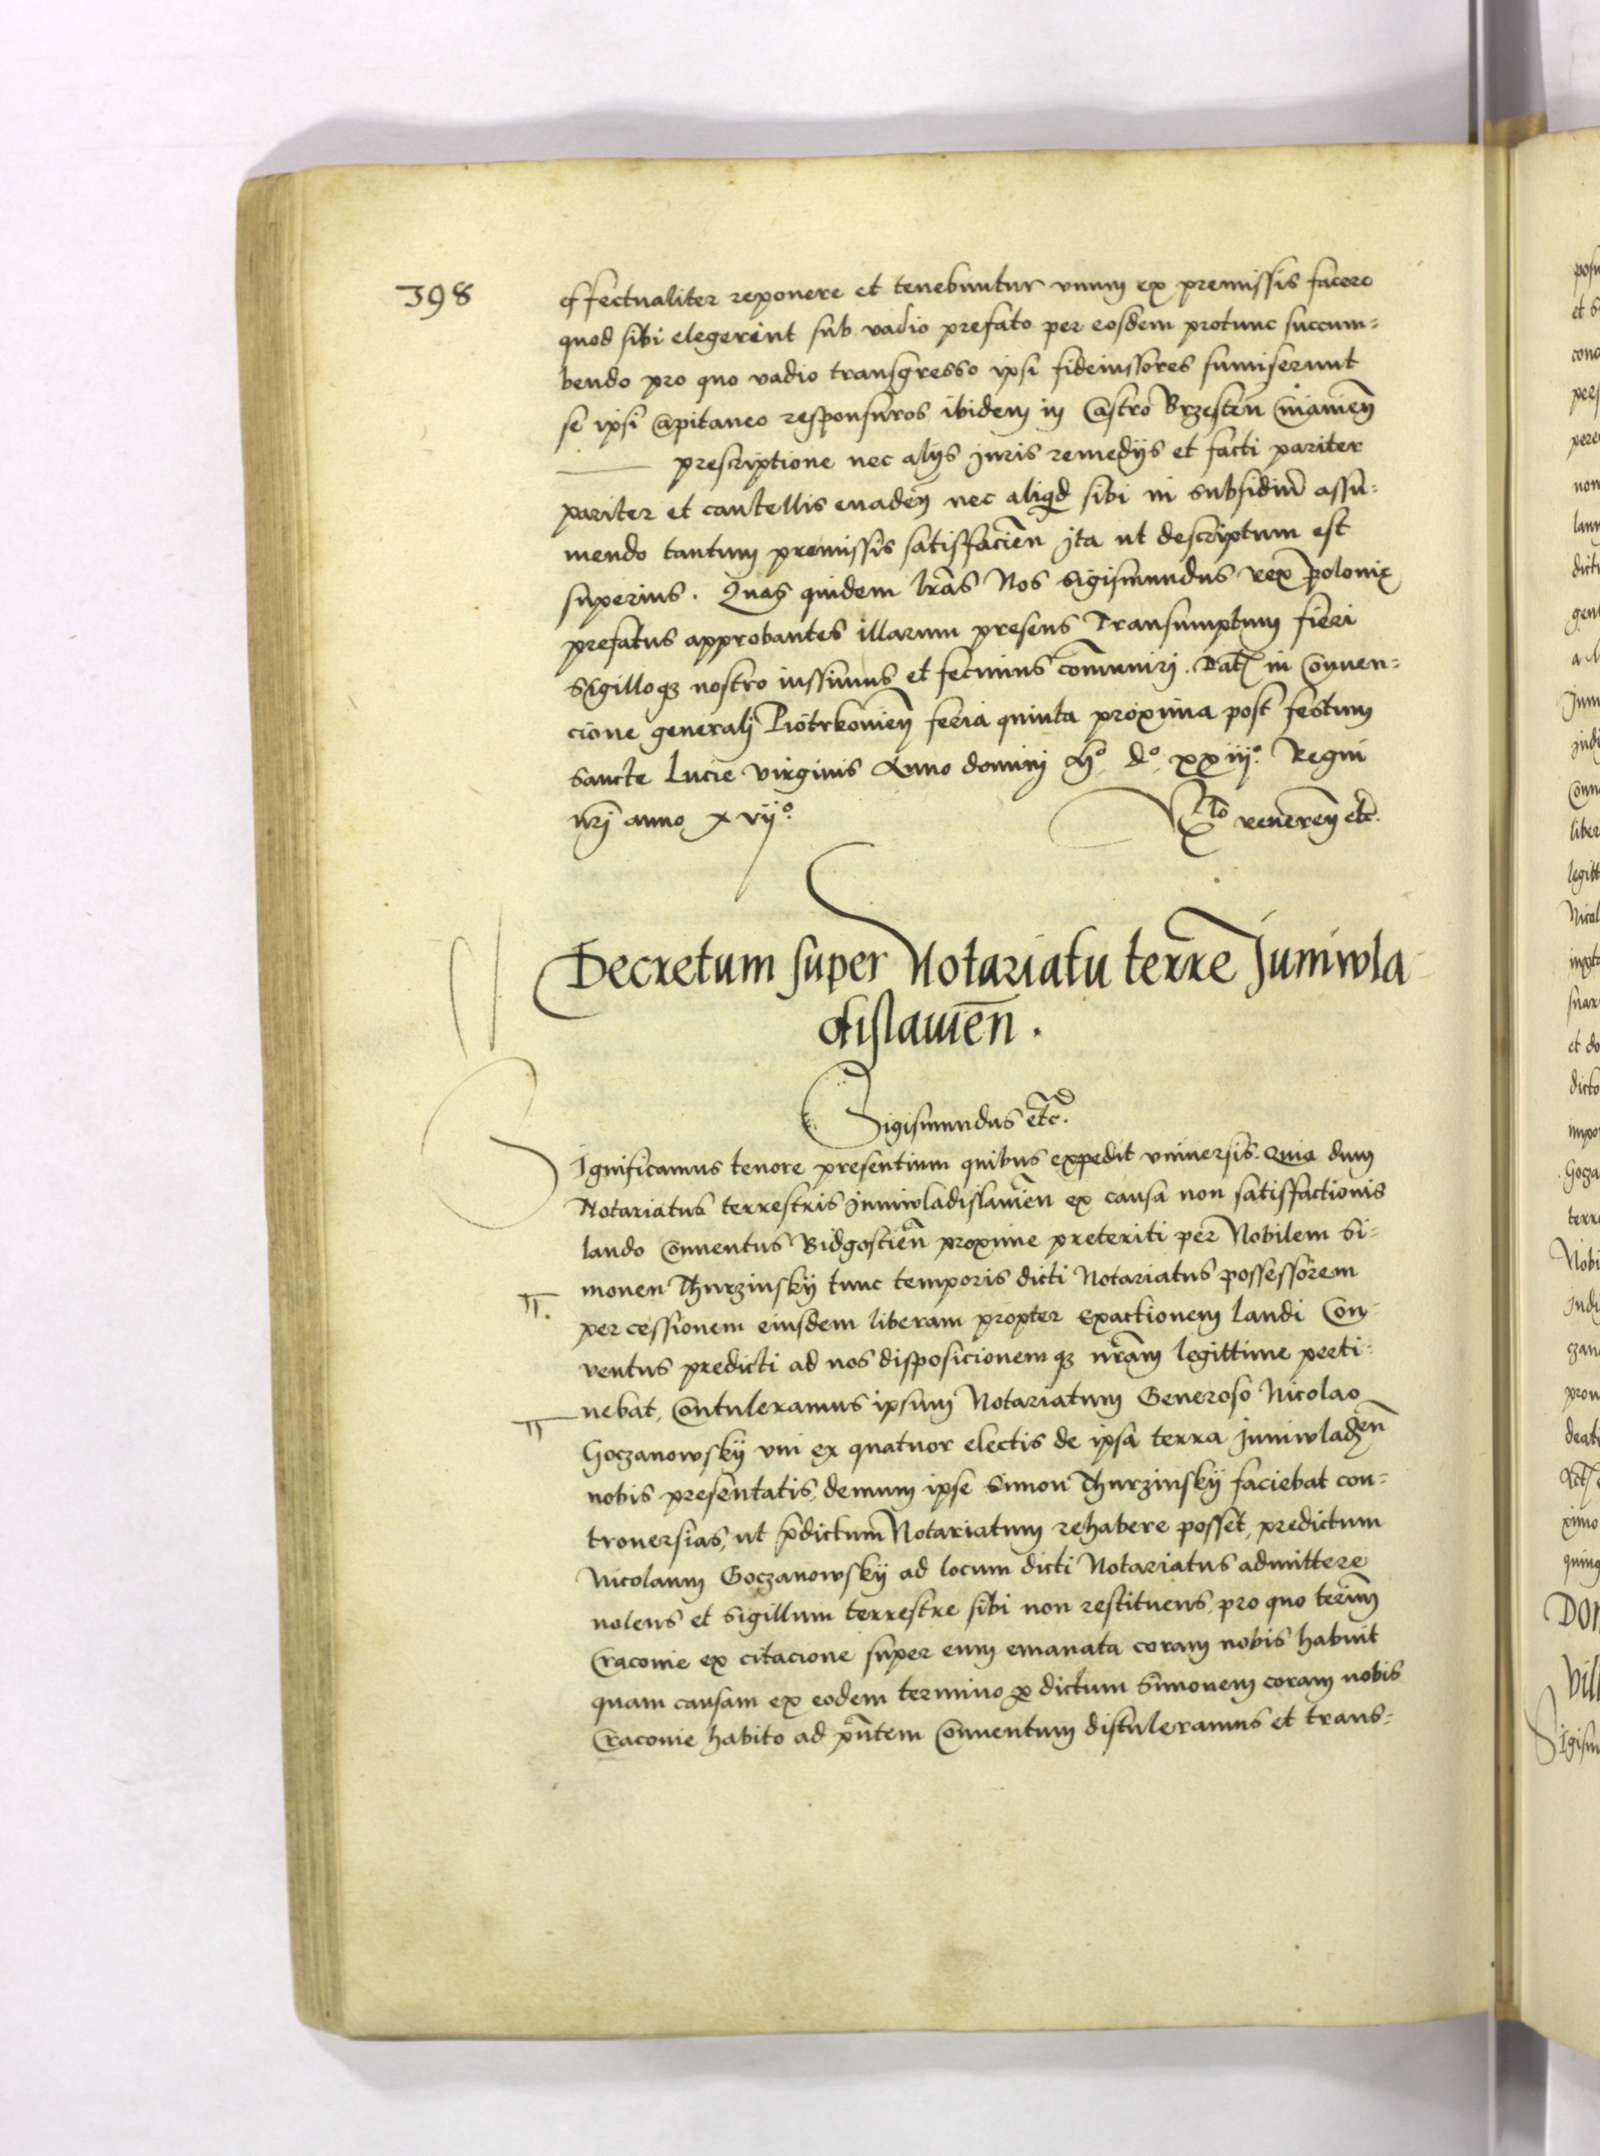 398
effectualiter reponere et tenebuntur unum ex premissis facere
quod sibi elegerint sub vadio prefato per eosdem protunc succum=
bendo pro quo vadio transgresso ipsi fideiussores sumiserunt
se ipsi Capitaneo responsuros ibidem in Castro Brzesten Cuiavien̄
prescriptione nec alijs Juris remedijs et facti pariter
pariter et cautellis evaden̄ nec aliq̄d sibi in subsidiū assu=
mendo tantum premissis satisfacien̄ Jta ut descriptum est
superius. Quas quidem lr̄as Nos Sigismundus rex polonię
prefatus approbantes illarum presens Transumptum fieri
Sigilloqz nostro iussimus et fecimus cōmuniri. Dat in Conven=
cione generalj Piotrkovien̄ feria quinta proxima post festum
Sancte Lucie virginis Anno dominj Mº. dº. xxiijº. Regni
nr̄j anno xvijº.
R̄to reveren̄ etc̄.
Decretum super Notariatu terre Juniwla=
dislavien̄.
Sigismundus etc̄.
Significamus tenore presentium quibus expedit universis. Quia dum
Notariatus terrestris Juniwladislavien̄ ex causa non satisfactionis
laudo Conventus Bidgostien̄ proxime preteriti per Nobilem Si=
monen Thurzinskÿ tunc temporis dicti Notariatus possessorem
per cessionem eiusdem liberam propter Exactionem laudi Con=
ventus predicti ad nos disposicionemqz nr̄am legittime perti=
nebat, Contuleramus ipsum Notariatum Generoso Nicolao
Goczanowskÿ uni ex quatuor electis de ipsa terra Juniwladen̄
nobis presentatis, demum ipse Simon Thurzinskÿ faciebat con=
troversias, ut p̄dictum Notariatum rehabere posset, predictum
Nicolaum Goczanowskÿ ad locum dicti Notariatus admittere
nolens et Sigillum terrestre sibi non restituens, pro quo term̄
Cracovie ex citacione super eum emanata coram nobis habuit
quam causam ex eodem termino p dictum Simonem coram nobis
Cracovie habito ad pn̄tem Conventum distuleramus et trans=